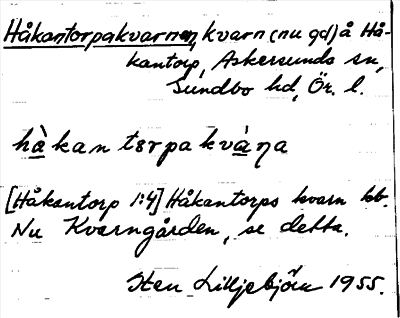 Håkantorpakvarnen, kvarn (nu gd) å Hå-
kantorp, Askersunds sn,
Sundbo hd, Ör. l.
hàkantɘrpakvàṇa
[Håkantorp 1:4] Håkantorps kvarn kb.
Nu Kvarngården, se detta.
Sten Lilljebjörn 1955.